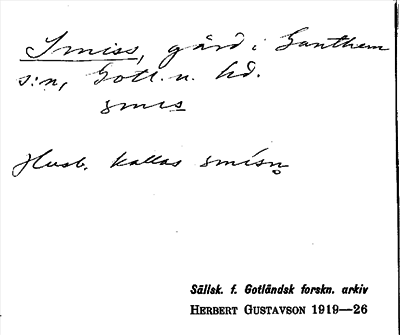 Smiss, gård i Ganthem
s:n, Gotl. n. hd.
smis
Husb. kallas smisn̥
Sällsk. f. Gotländsk forskn. arkiv
HERBERT GUSTAVSON 1919—26